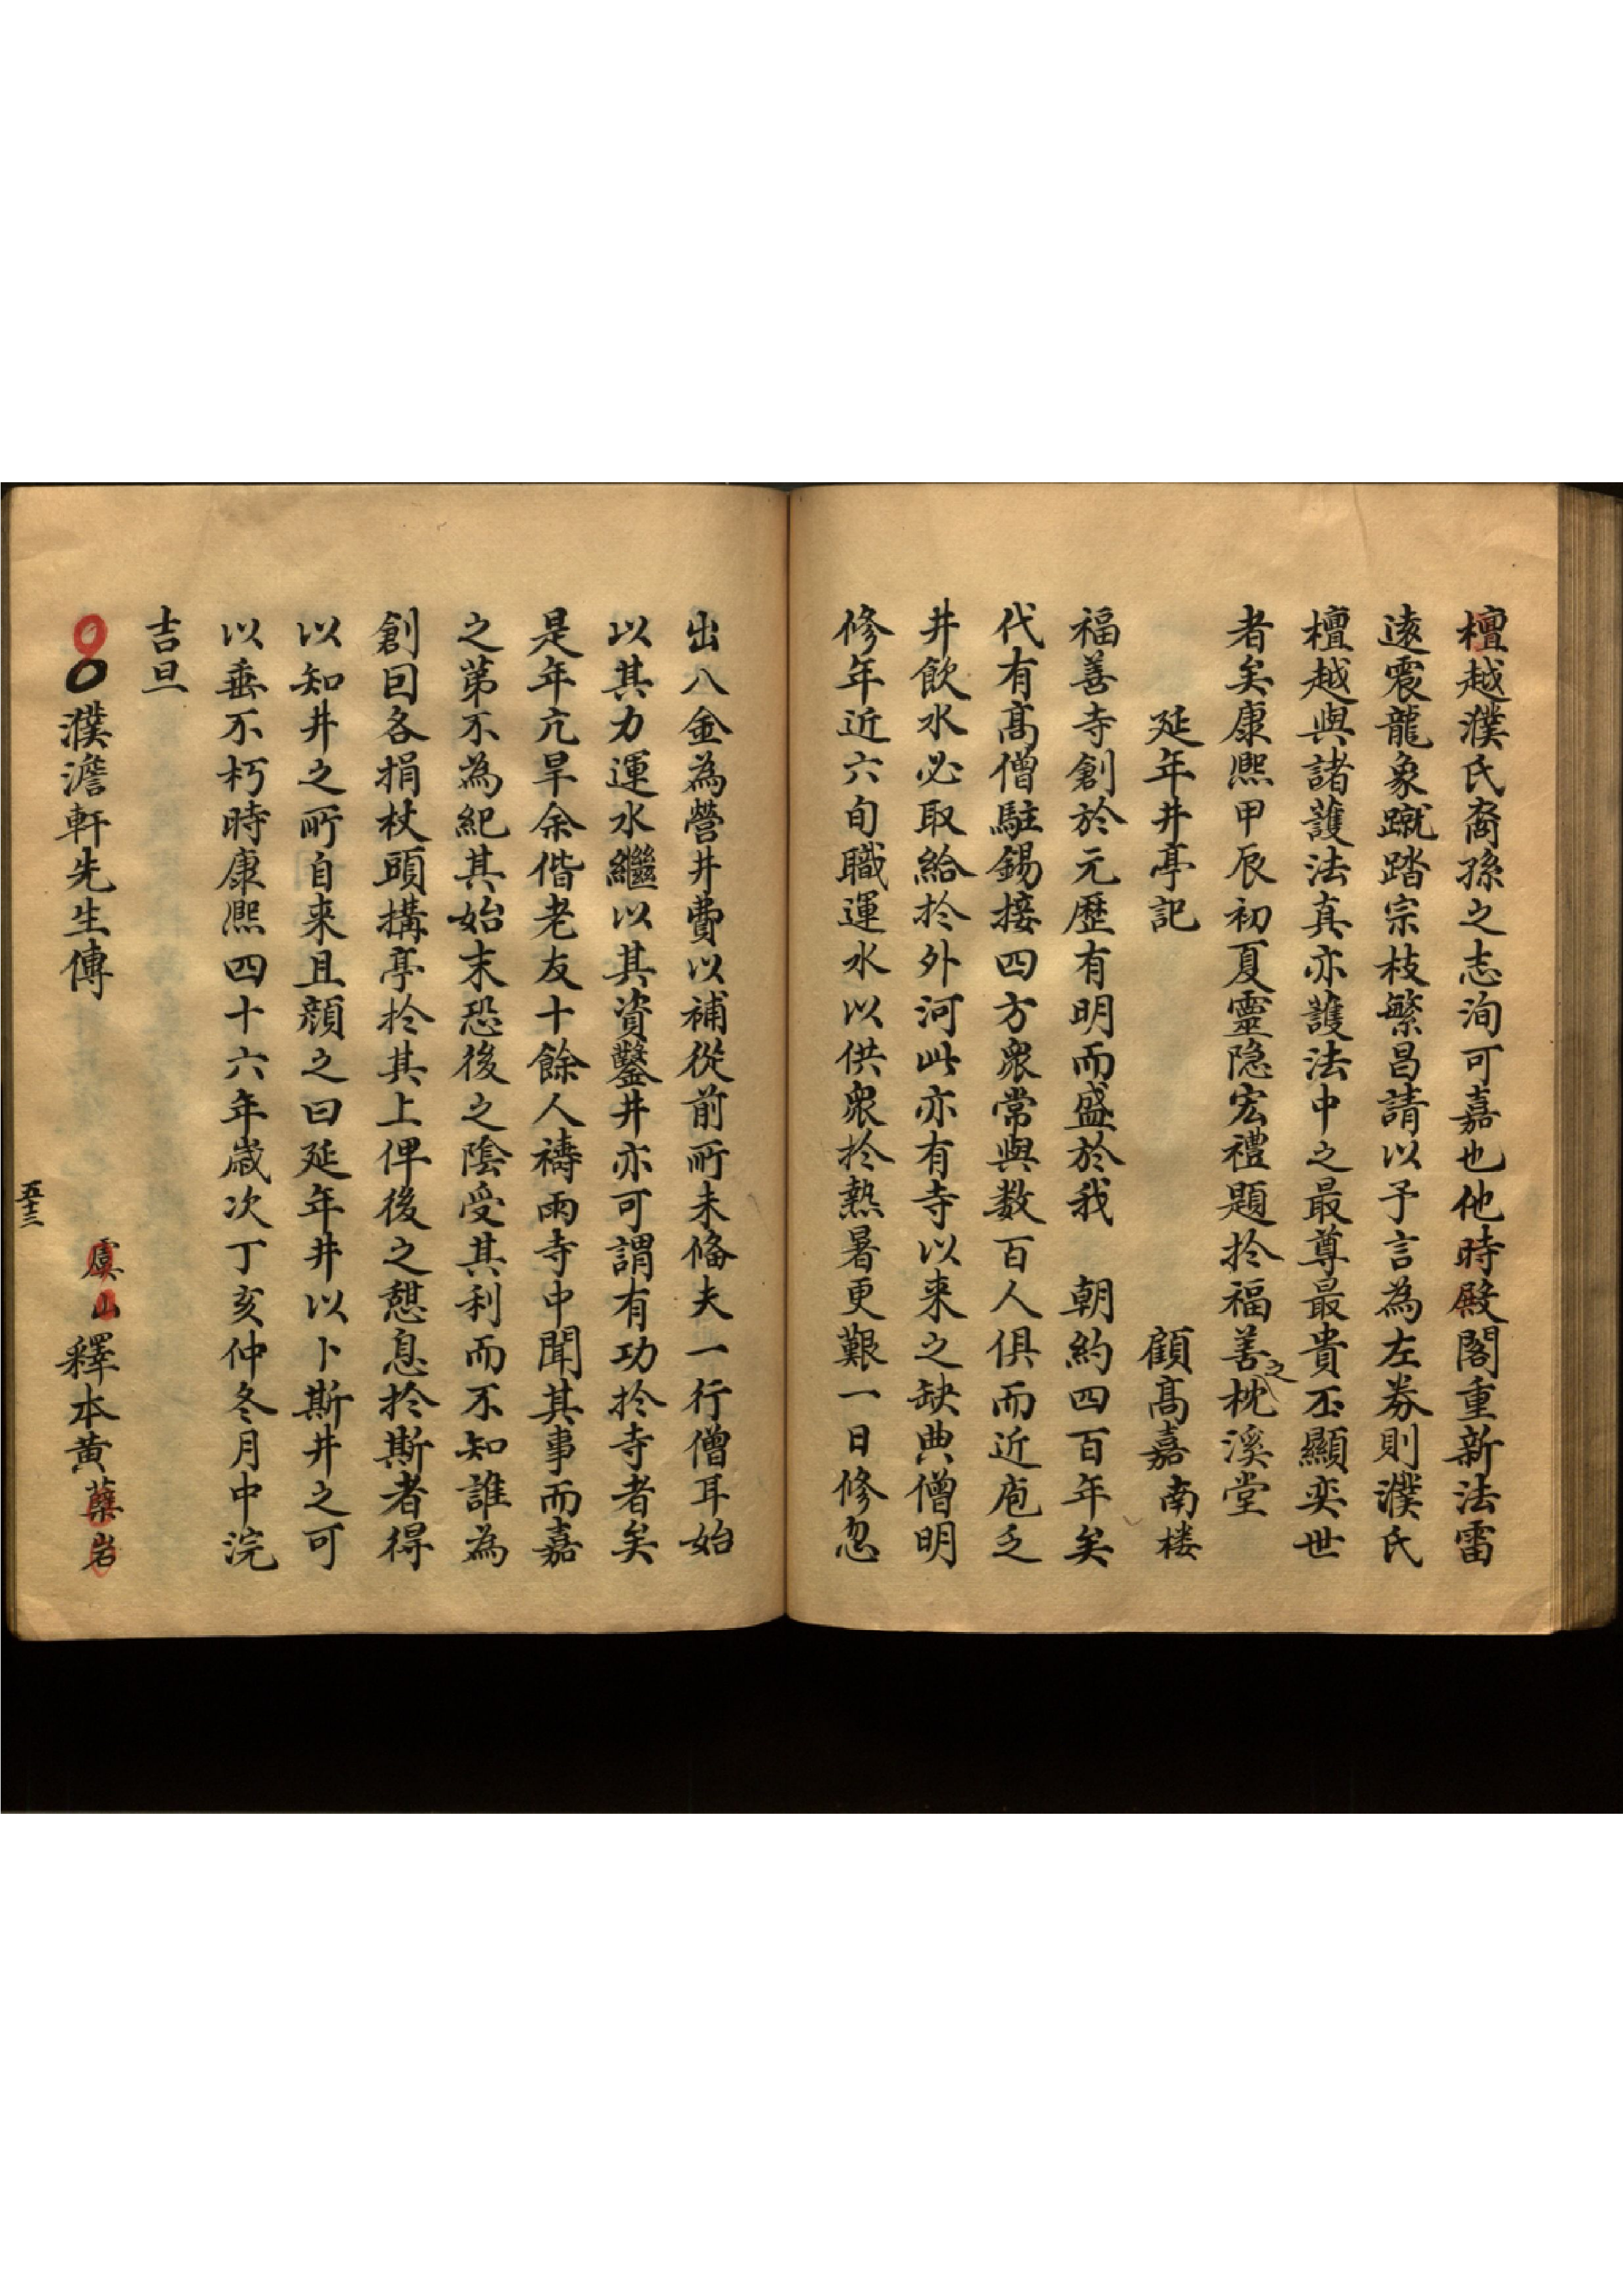 檀越濮氏裔孫之志洵可嘉也他時殿閣重新法雷
遠震龍象蹴踏宗枝繁昌請以予言為左券則濮氏
檀越與諸護法真亦護法中之最尊最貴丕顯奕世
者矣康熙甲辰初夏靈隐宏禮題扵福善之枕溪堂
延年井亭記　顧髙嘉南楼
福善寺創於元歷有明而盛於我　朝約四百年矣
代有髙僧駐錫接四方衆常與数百人俱而近庖乏
井飲水必取給扵外河此亦有寺以来之缺典僧明
修年近六旬職運水以供衆扵熱暑更艱一日修忽
出八金為營井費以補從前所未俻夫一行僧耳始
以其力運水繼以其資鑿井亦可謂有功扵寺者矣
是年亢旱余偕老友十餘人禱雨寺中聞其事而嘉
之第不為紀其始末恐後之陰受其利而不知誰為
創囙各捐杖頭搆亭扵其上俾後之憇息扵斯者得
以知井之所自来且顔之曰延年井以卜斯井之可
以垂不朽時康熙四十六年歲次丁亥仲冬月中浣
吉旦
濮澹軒先生傳　虞山釋本黄蘖岩
五十三